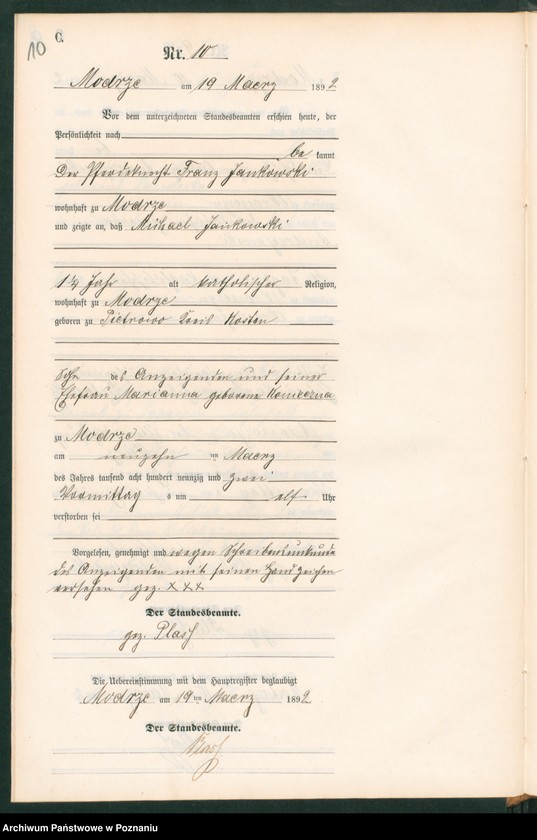 10
C.
Nr. 10
Modrze am 19 Maerz 1892
Vor dem unterzeichneten Standesbeamten erschien heute, der
Persönlichkeit nach
be kannt
Der Pferdeknecht Franz Jankowski
wohnhaft zu Modrze
und zeigte an, daß Michael Jankowski
alt katholischer Religion,
wohnhaft zu Modrze
geboren zu Pietrowo Kreis Kosten
Sohn des Anzeigenden und seiner
Ehefrau Marianna geborene
zu Modrze
am neunzehn ten Maerz
des Jahres tausend acht hundert neunzig und zwei
Vormittag s um elf Uhr
verstorben sei
Vorgelesen, genehmigt und wegen Schreibensunkunde
des Anzeigenden mit seinen Handzeichen
versehen gez. XXX
Der Standesbeamte.
gez.
Die Uebereinstimmung mit dem Hauptregister beglaubigt
Modrze am 19 ten Maerz 1892
Der Standesbeamte.
Archiwum Państwowe w Poznaniu